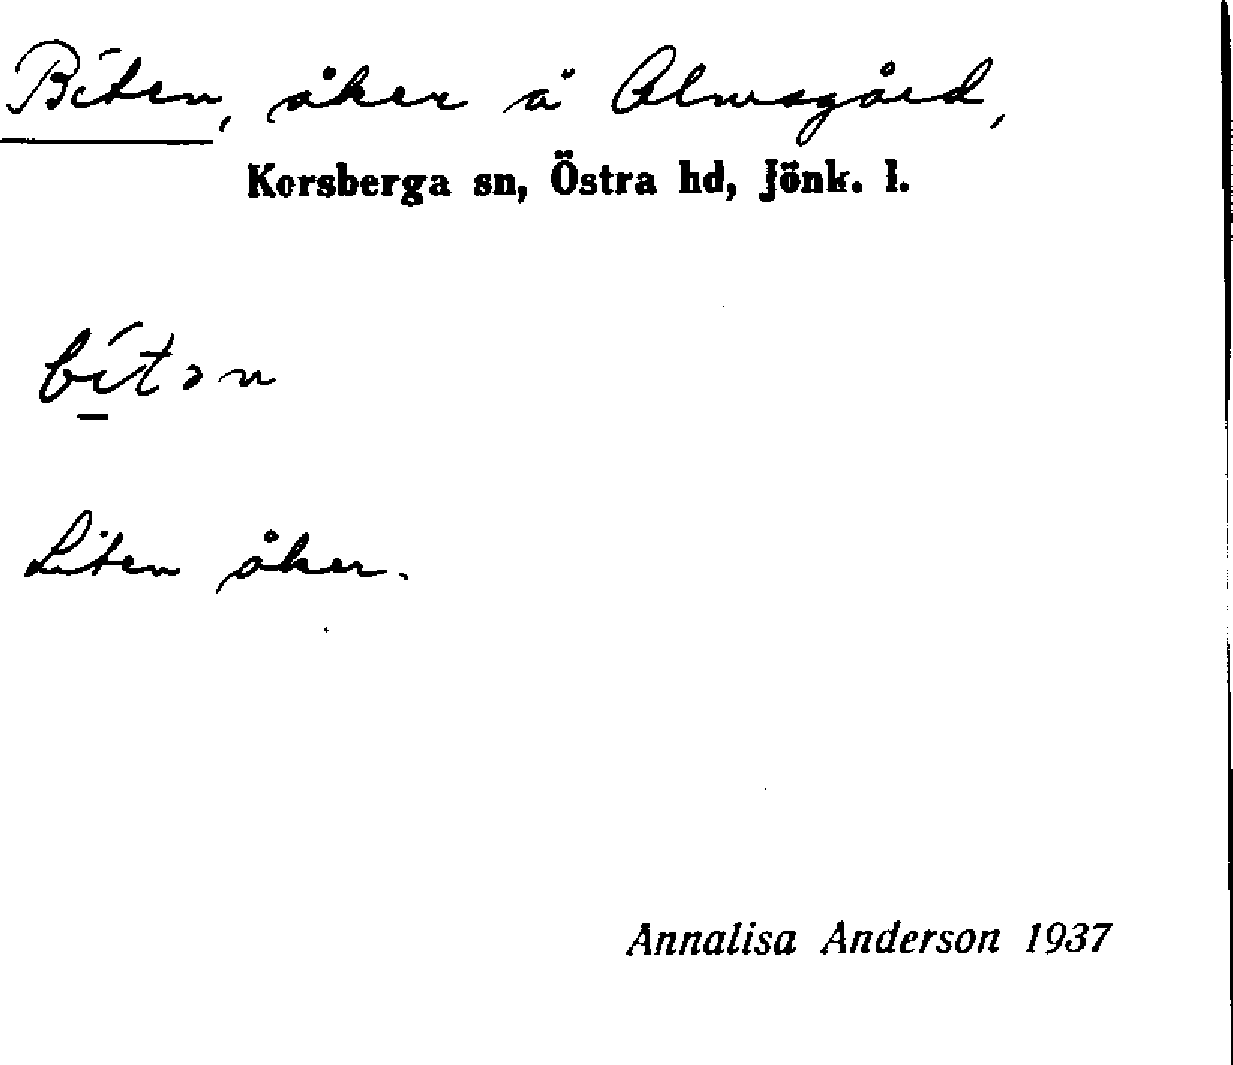 Biten, åker å Almsgård,
Korsberga sn, Östra hd, Jönk. l.
bí̱tən
Liten åker.
Annalisa Anderson 1937